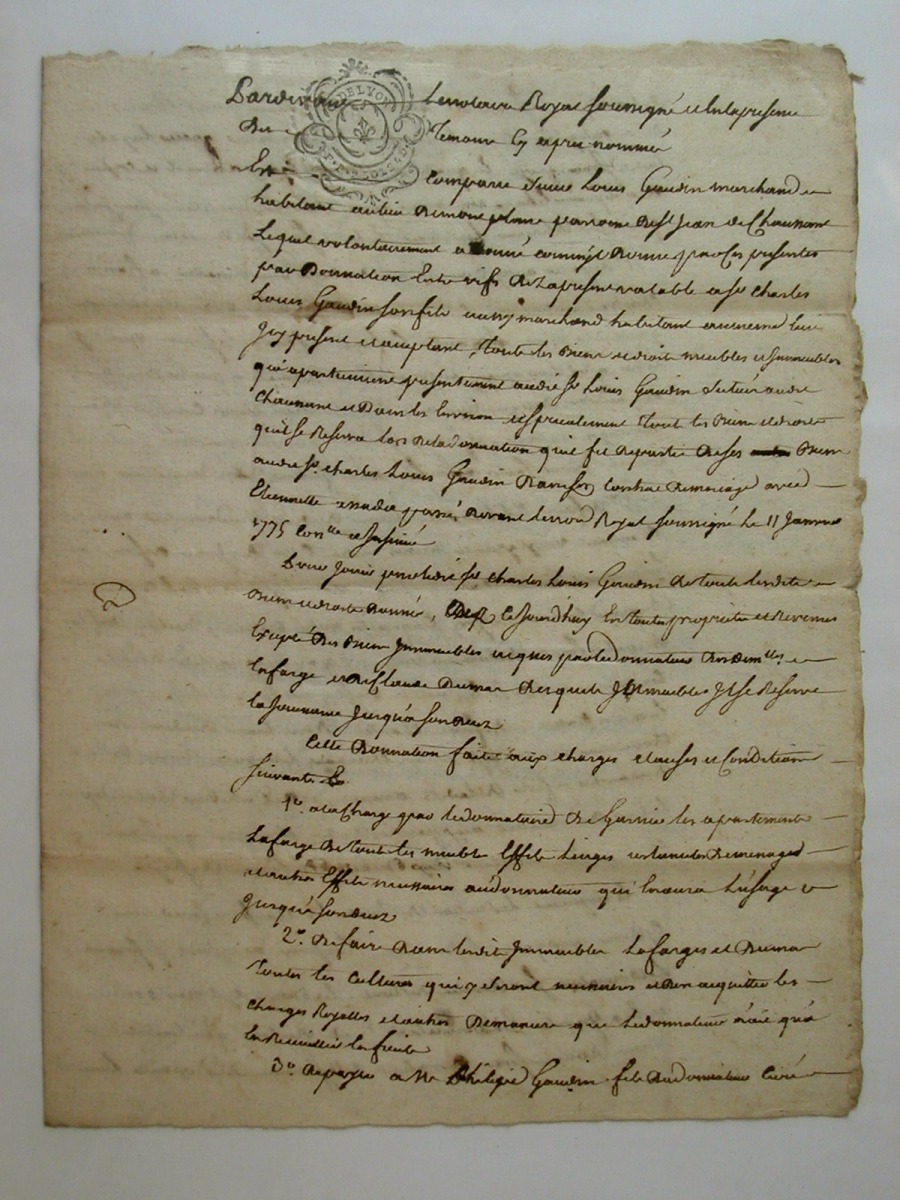 Pardevant le notaire Royal soussigné et en la presence
Des temoins cy apres nommés
DE LYON
Est comparu sieur Louis Gaudin marchand
habitant au lieu de parroisse de St Jean de Chaumont
Lequel volontairement a donné comme il donne par ces presentes
par Donnation entre vifs a sr Charles
Louis Gaudin son fils aussy marchand habitant au meme lieu
Icy present et acceptant, toute les Biens et droits meubles et Immeubles
qui apartiennent presentement audit Sr Louis Gaudin situés audit
Chaumont et Dans les Environ et specialement tout les Biens et droits
qu'il se Reserva lors de la donnation qu'il fit de partie de ses Biens
audit Sr charles Louis Gaudin Dans son Contrat De mariage avec
passé Devant le no.re Royal soussigné le 11 Janvier
1775
Pour Jouir par ledit Sr Charles Louis Gaudin de toute lesdits
Biens et droits Donnés, Des ce Jourdhuy En toute proprieté et Revenus
Excepté des Biens Immeubles acquis par le donnateur des
lafarge et de Claude Dumas desquels Immeubles Il se Reserve
la Jouissance Jusqu'a son deces
Cette Donnation faite aux charges clauses et Conditions
suivantes
1o. a la Charge par le donnataire de Garnir les apartements
Lafarge de tout les meubles Effets Linges ustanciles De menage
et autres Effets necessaires au donnateur qui En aura L'usage
Jusqu'a son deces
2o. De faire Dans lesdits Immeubles Lafarge et Dumas
Toutes les Cultures qui y seront necessaires et D'en acquitter les
charges Royalles et autres De maniere que le donnateur n'aie qu'a
En Recueillir les fruits
3o. De payer a Mr Philipe Gaudin fils du donnateur curé